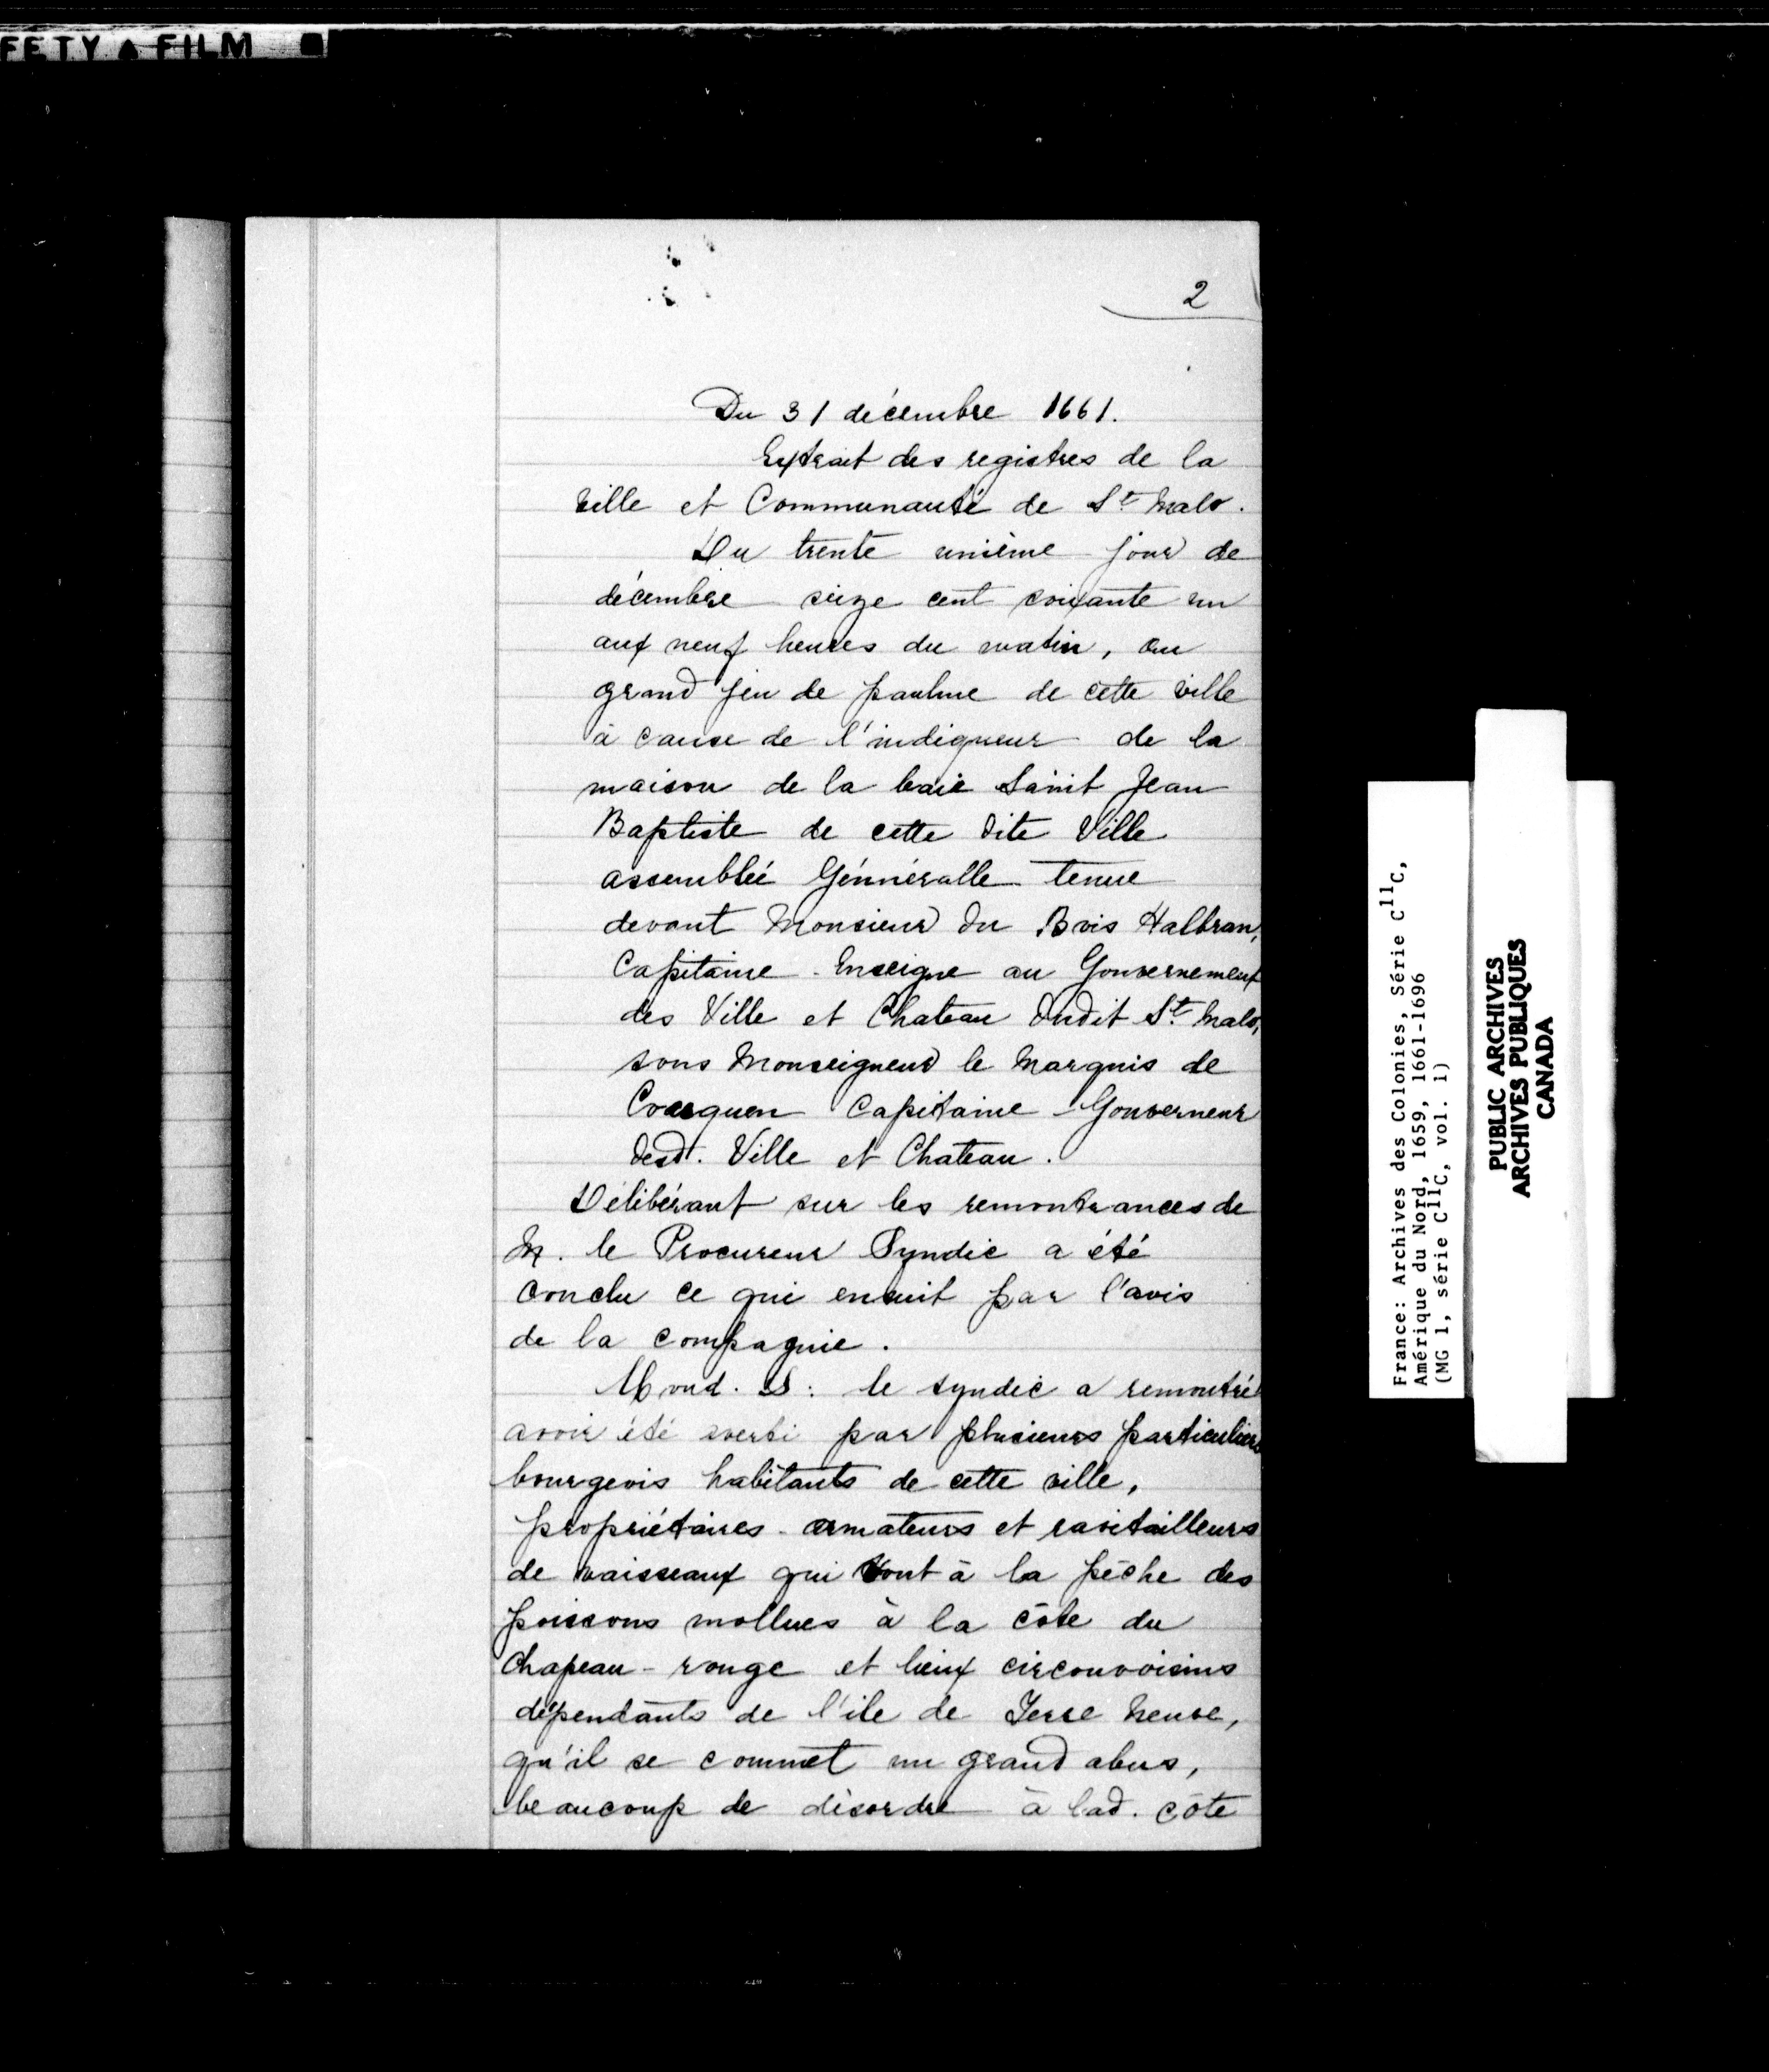 FETY ▲ FILM ■
2
Du 31 décembre 1661.
Extrait des registres de la
ville et Communauté de St Malo.
Du trente unième jour de
décembre seize cent soixante un
aux neuf heures du matin, au
grand jeu de paulme de cette ville
à cause de l'indigneur de la
maison de la baie Saint Jean
Baptiste de cette dite Ville
assemblée Génnéralle tenue
devant Monsieur du Bois Halbran,
Capitaine - Enseigne au Gouvernement
des Ville et Chateau dudit St. Malo,
sous Monseigneur le Marquis de
Coasquen Capitaine - Gouverneur
desd. Ville et Chateau.
Délibérant sur les remontrances de
M. le Procureur Syndic a été
conclu ce qui ensuit par l'avis
de la compagnie.
Mond. S: le syndic a remontré
avoir été averti par plusieurs particuliers
bourgeois habitants de cette ville,
propriétaires - armateurs et ravitailleurs
de vaisseaux qui vont à la pêche des
poissons mollues à la côte du
Chapeau-rouge et lieux circonvoisins
dépendants de l'ile de Terre Neuve,
qu'il se commet un grand abus,
beaucoup de désordre à lad. côte
France: Archives des Colonies, Série C11C,
Amérique du Nord, 1659, 1661-1696
(MG 1, série C11C, vol. 1)
PUBLIC ARCHIVES
ARCHIVES PUBLIQUES
CANADA